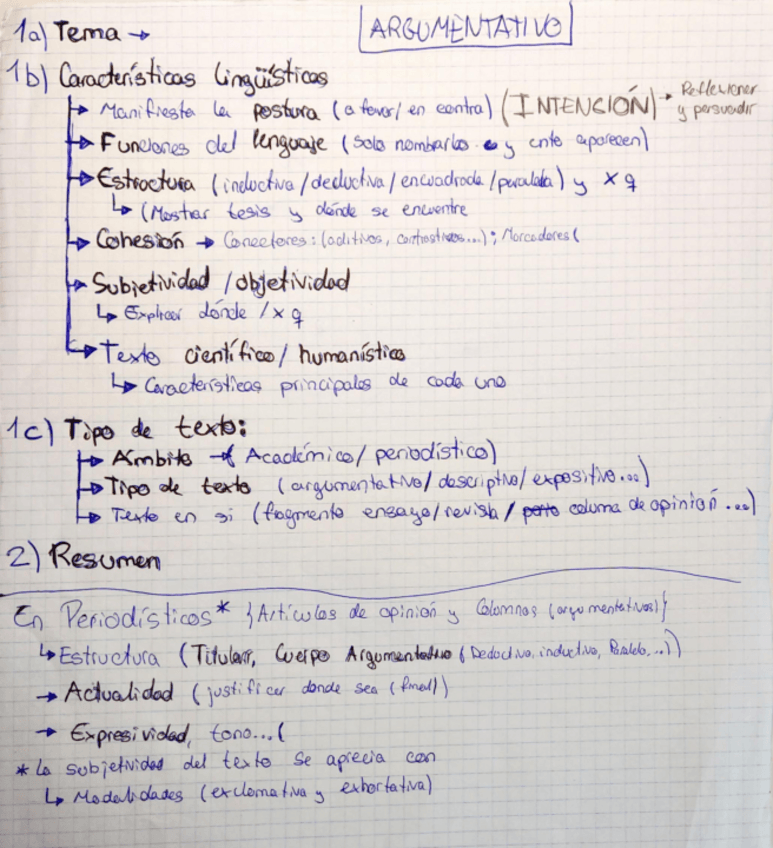 ARGUMENTATIVO
1a) Tema →
1b) Características lingüísticas
↳ Manifiesta la postura (a favor/ en contra) (INTENCIÓN) → Reflexionar y persuadir
↳ Funciones del lenguaje (solo nombarlas y cnto aparecen)
↳ Estructura (inductiva/deductiva/encuadrada/paralela) y x q
↳ (Mostrar tesis y dónde se encuentre
↳ Cohesión → Conectores: (aditivos, contrastivos...); Marcadores (
↳ Subjetividad /objetividad
↳ Explicar dónde / x q
↳ Texto científico/ humanístico
↳ Características principales de cada uno
1c) Tipo de texto:
↳ Ámbito → (Académico/ periodístico)
↳ Tipo de texto (argumentativo/ descriptivo/ expositivo...)
↳ Texto en si (fragmento ensayo/revista / columa de opinión ...)
2) Resumen
En Periodísticos* {Artículos de opinión y Columnas (argumentativos)}
↳ Estructura (Titular, Cuerpo Argumentativo (Deductivo, inductivo, Paralelo,...))
→ Actualidad (justificar donde sea (final))
→ Expresividad, tono...(
* La subjetividad del texto se aprecia con
↳ Modalidades (exclamativa y exhortativa)